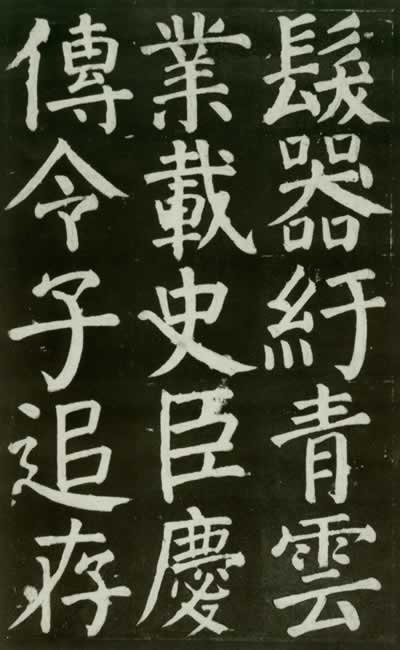 髮器紆青雲
業載史臣慶
傳令子追存